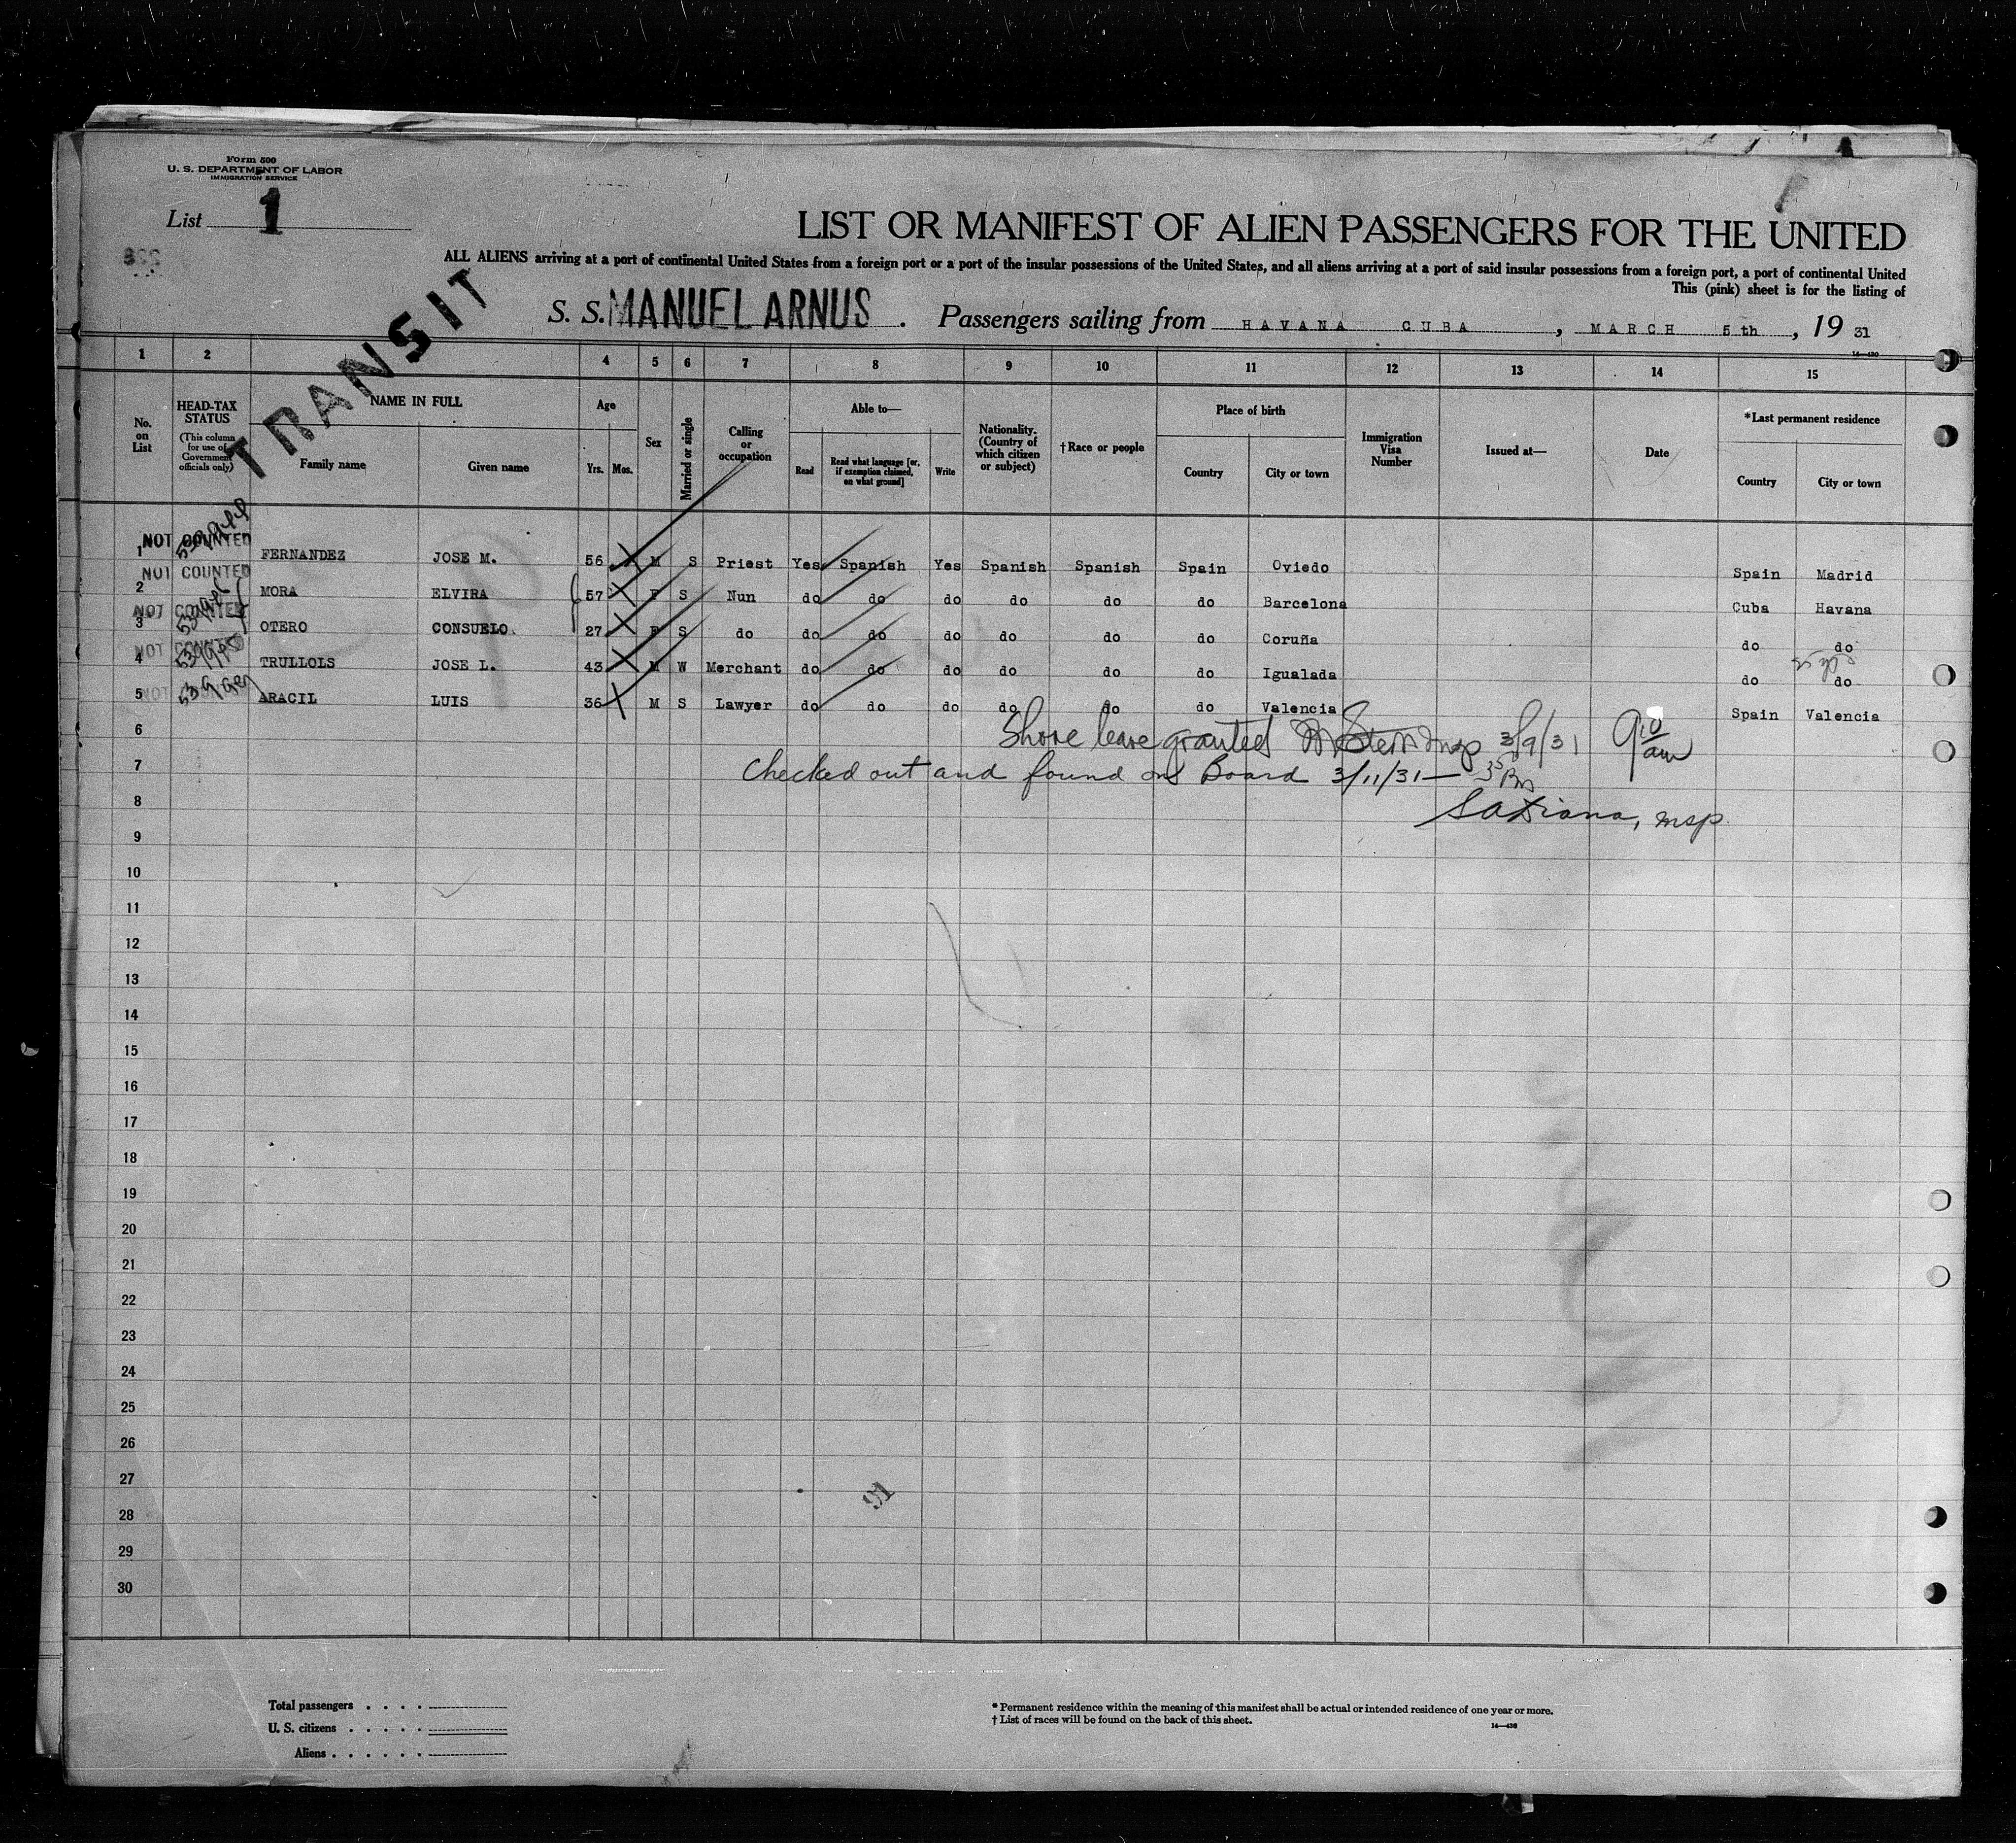 Form 500
U. S. DEPARTMENT OF LABOR
IMMIGRATION SERVICE
List 1
LIST OR MANIFEST OF ALIEN PASSENGERS FOR THE UNITED
ALL ALIENS arriving at a port of continental United States from a foreign port or a port of the insular possessions of the United States, and all aliens arriving at a port of said insular possessions from a foreign port, a port of continental United
This (pink) sheet is for the listing of
TRANSIT
S. S. MANUEL ARNUS. Passengers sailing from HAVANA CUBA, MARCH 5th, 19 31
14—430
1 2 4 5 6 7 8 9 10 11 12 13 14 15
No. on List
HEAD-TAX STATUS
(This column for use of Government officials only)
NAME IN FULL
Family name Given name
Age
Yrs. Mos.
Sex
Married or single
Calling or occupation
Able to—
Read
Read what language [or, if exemption claimed, on what ground]
Write
Nationality. (Country of which citizen or subject)
†Race or people
Place of birth
Country City or town
Immigration Visa Number
Issued at—
Date
*Last permanent residence
Country City or town
NOT COUNTED
1 FERNANDEZ JOSE M. 56 M S Priest Yes Spanish Yes Spanish Spanish Spain Oviedo Spain Madrid
NOT COUNTED
2 MORA ELVIRA 57 F S Nun do do do do do do Barcelona Cuba Havana
NOT COUNTED
3 OTERO CONSUELO. 27 F S do do do do do do do Coruña do do
NOT COUNTED
4 TRULLOLS JOSE L. 43 M W Merchant do do do do do do Igualada do do
NOT COUNTED
5 ARACIL LUIS 36 M S Lawyer do do do do do do Valencia Spain Valencia
6 Shore leave granted 3/9/31 9 10 am
7 Checked out and found on Board 3/11/31—
8
9
10
11
12
13
14
15
16
17
18
19
20
21
22
23
24
25
26
27
91
28
29
30
Total passengers . . . .
U. S. citizens . . . . .
Aliens . . . . . .
* Permanent residence within the meaning of this manifest shall be actual or intended residence of one year or more.
† List of races will be found on the back of this sheet.